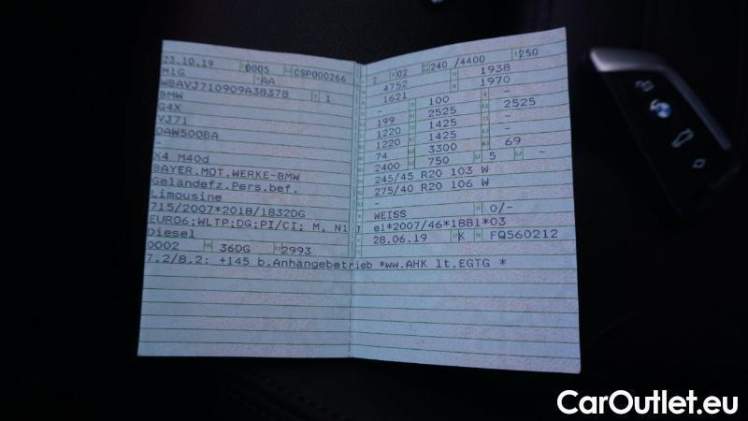 23.10.19 0005 CSP000266
M1G AA
WBAVJ710909A38378 1
BMW
G4X
VJ71
DAW500BA
-
X4 M40d
BAYER.MOT.WERKE-BMW
Geländefz.Pers.bef.
Limousine
715/2007*2018/1832DG
EURO6;WLTP;DG;PI/CI; M, N1 I
Diesel
0002 36DG 2993
7.2/8.2: +145 b.Anhängebetrieb *ww.AHK lt.EGTG *
2 02 240 /4400 250
4752 1938
1621 1970
- 100 -
199 2525 2525
1220 1425 -
1220 1425 -
74 3300 69
2400 750 5 -
245/45 R20 103 W
275/40 R20 106 W
-
WEISS 0/-
e1*2007/46*1881*03
28.06.19 K FQ560212
CarOutlet.eu